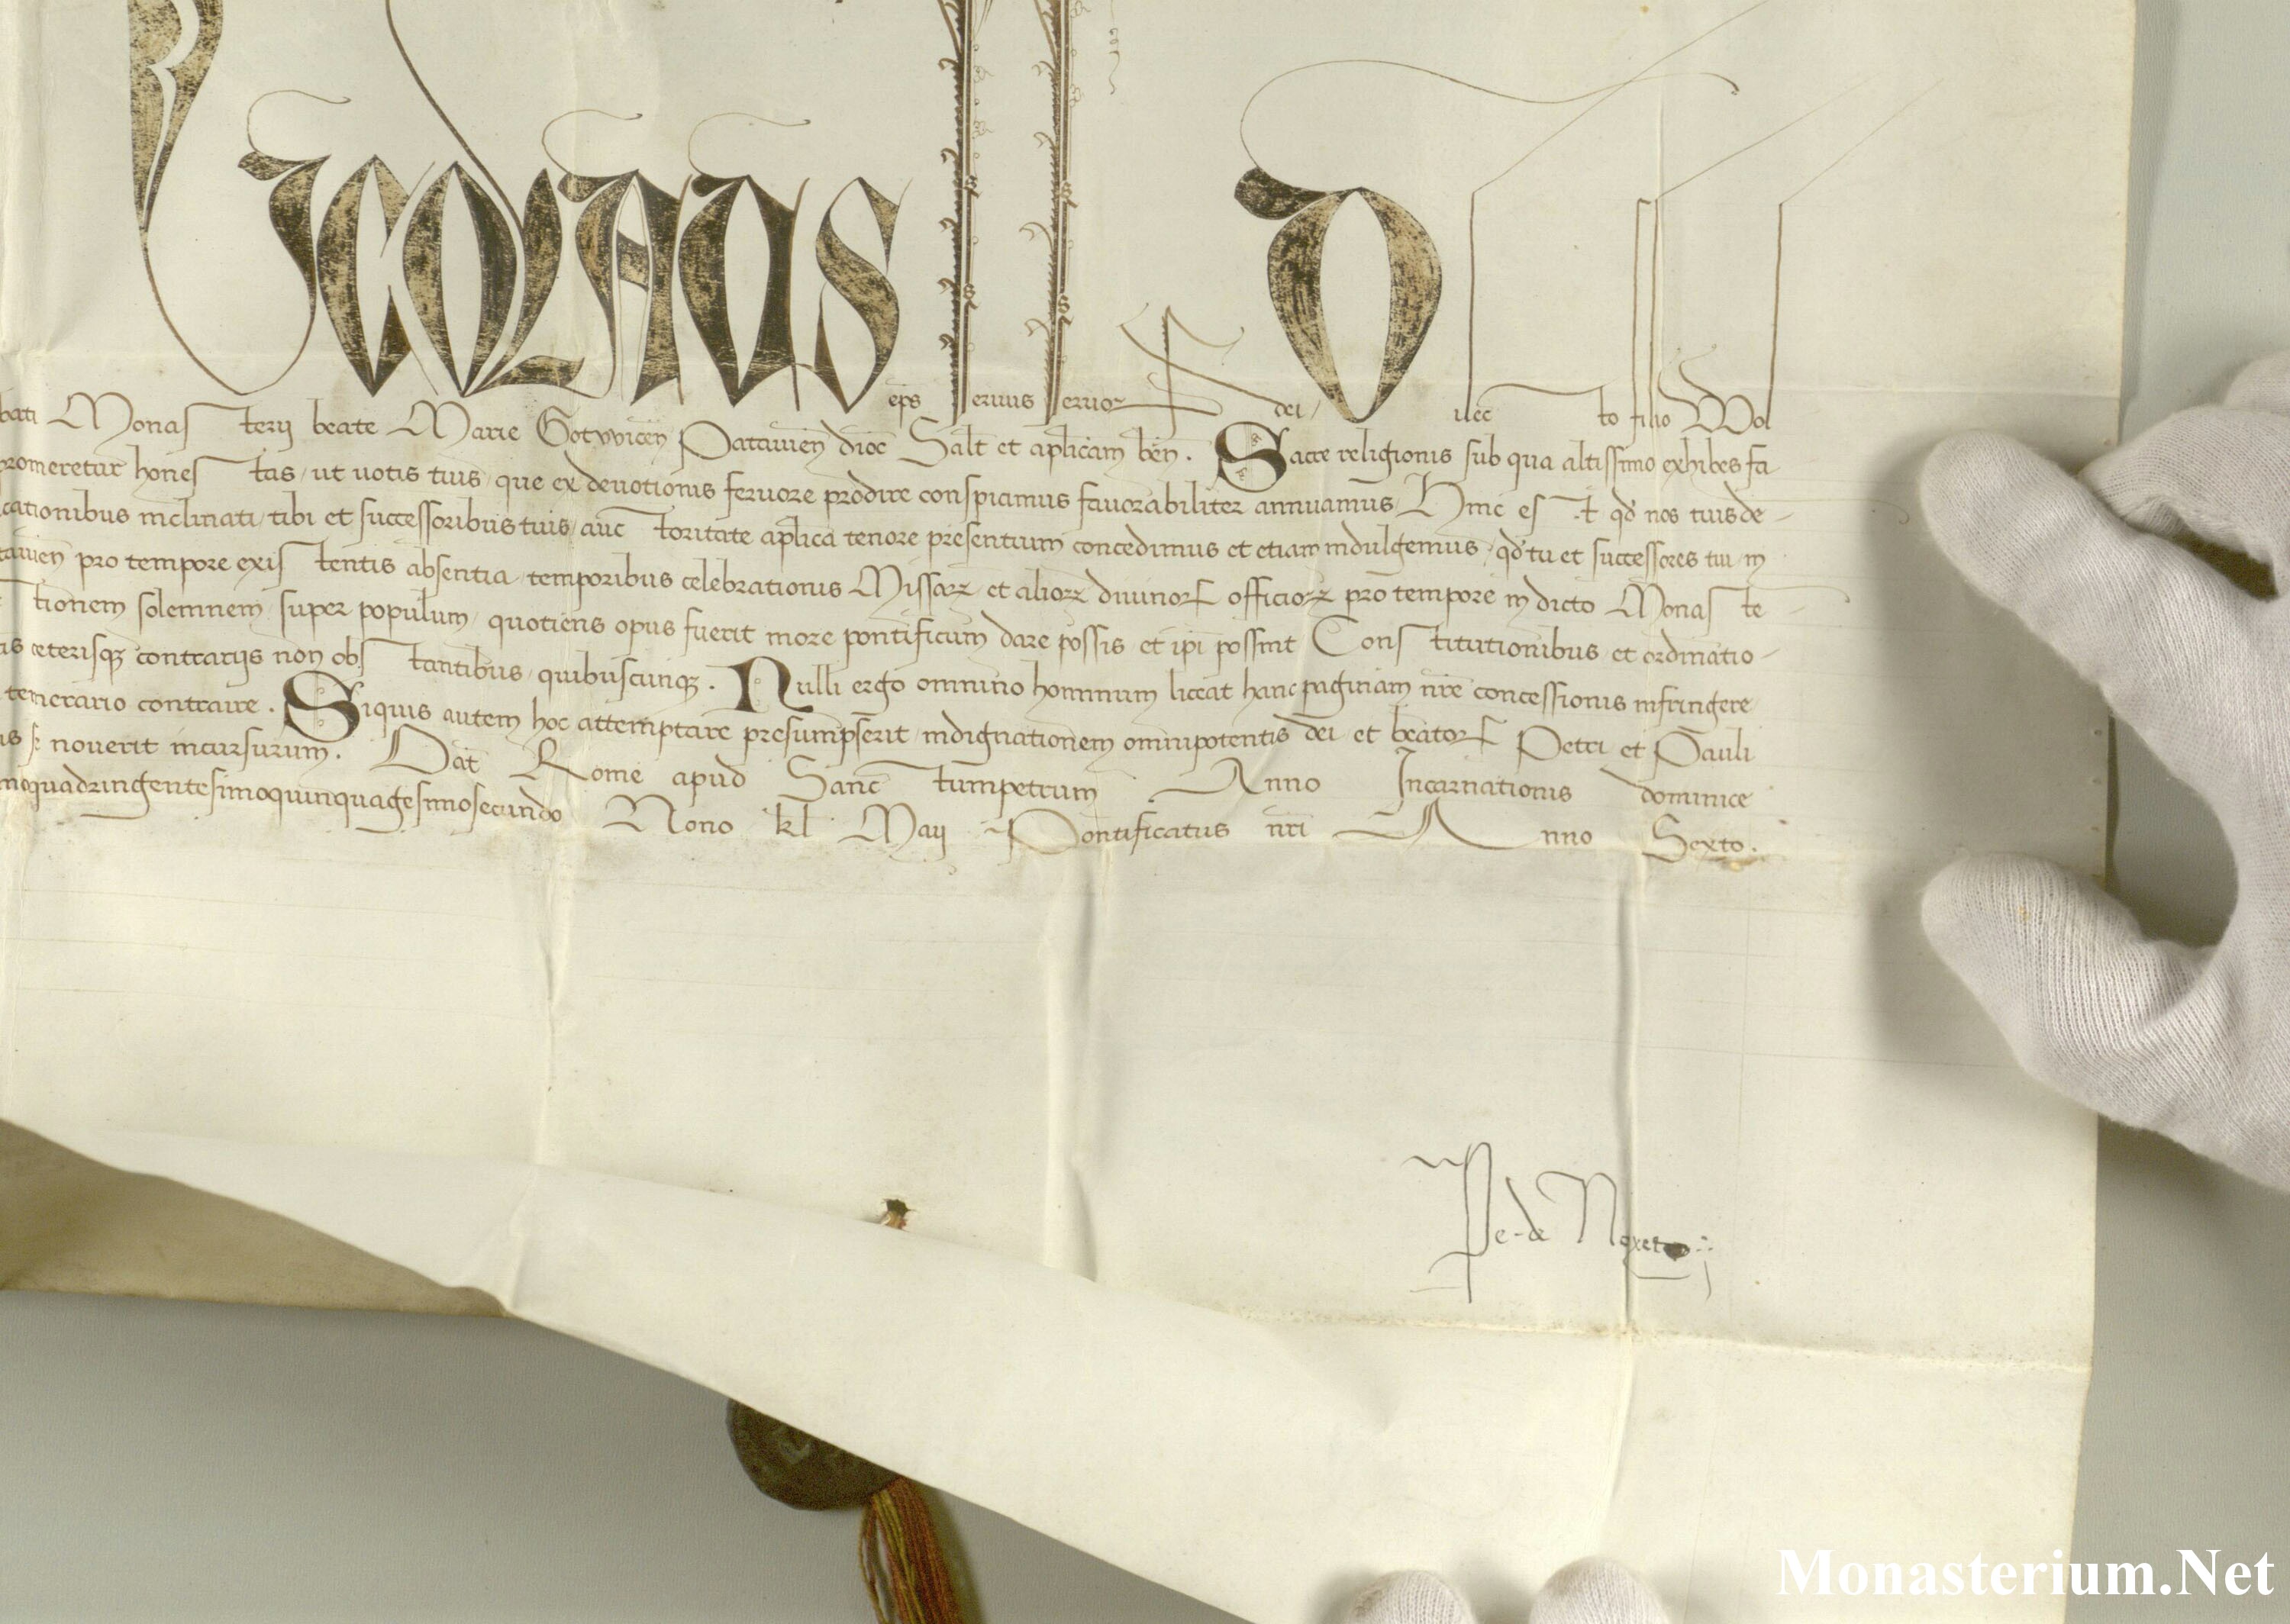 Nicolaus eps servus servoꝝ dei, Dilecto filio Wol
bati Monasterij beate Marie Gotwicen̄ Patavien̄ dioc̄ Salt̄ et aplicam ben̄. Sacre religionis sub qua altissimo exhibes fa-
promeretur honestas, ut votis tuis, que ex devotionis fervore prodire conspicimus favorabiliter annuamus, Hinc est qđ nos tuis de-
cationibus inclinati, tibi et successoribus tuis, auctoritate aplica tenore presentium concedimus et etiam indulgemus, qđ tu et successores tui, in
tavien̄ pro tempore existentis absentia, temporibus celebrationis Missaꝝ et alioꝝ divinoꝝ officioꝝ pro tempore in dicto Monaste-
tionem solemnem, super populum, quotiens opus fuerit more pontificum dare possis et ipi possint Constitutionibus, et ordinatio-
is ceterisqꝫ contrarijs non obstantibus, quibuscunqꝫ. Nulli ergo omnino hominum liceat hanc paginam nr̄e concessionis infringere
temerario contraire. Siquis autem hoc attemptare presumpserit, indignationem omnipotentis dei, et beatoꝝ Petri et Pauli
is se noverit incursurum. Dat̄ Rome apud Sanctumpetrum Anno Incarnationis dominice
moquadringentesimoquinquagesimosecundo Nono kl̄ Maij Pontificatus nr̄i Anno Sexto.
Pe. de Noxeto
Monasterium.Net